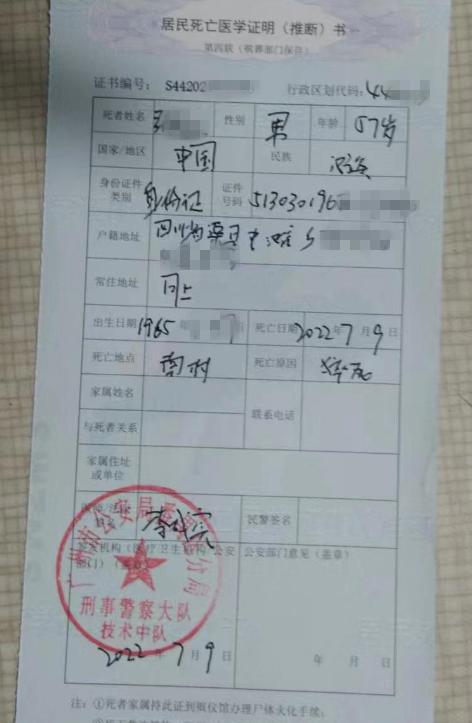 居民死亡医学证明（推断）书
第四联（殡葬部门保存）
证书编号： S44202 行政区划代码：44
死者姓名 性别 男 年龄 57岁
国家/地区 中国 民族 汉族
身份证件类别 身份证 证件号码 513030196
户籍地址 四川省渠县 乡
常住地址 同上
出生日期 1965 7日 死亡日期 2022年7月9日
死亡地点 死亡原因 猝死
家属姓名 联系电话
与死者关系
家属住址或单位
民警签名
公安部门意见（盖章）
广州市公安局 分局
刑事警察大队
技术中队
2022年7月9日 年 月 日
注：①死者家属持此证到殡仪馆办理尸体火化手续；